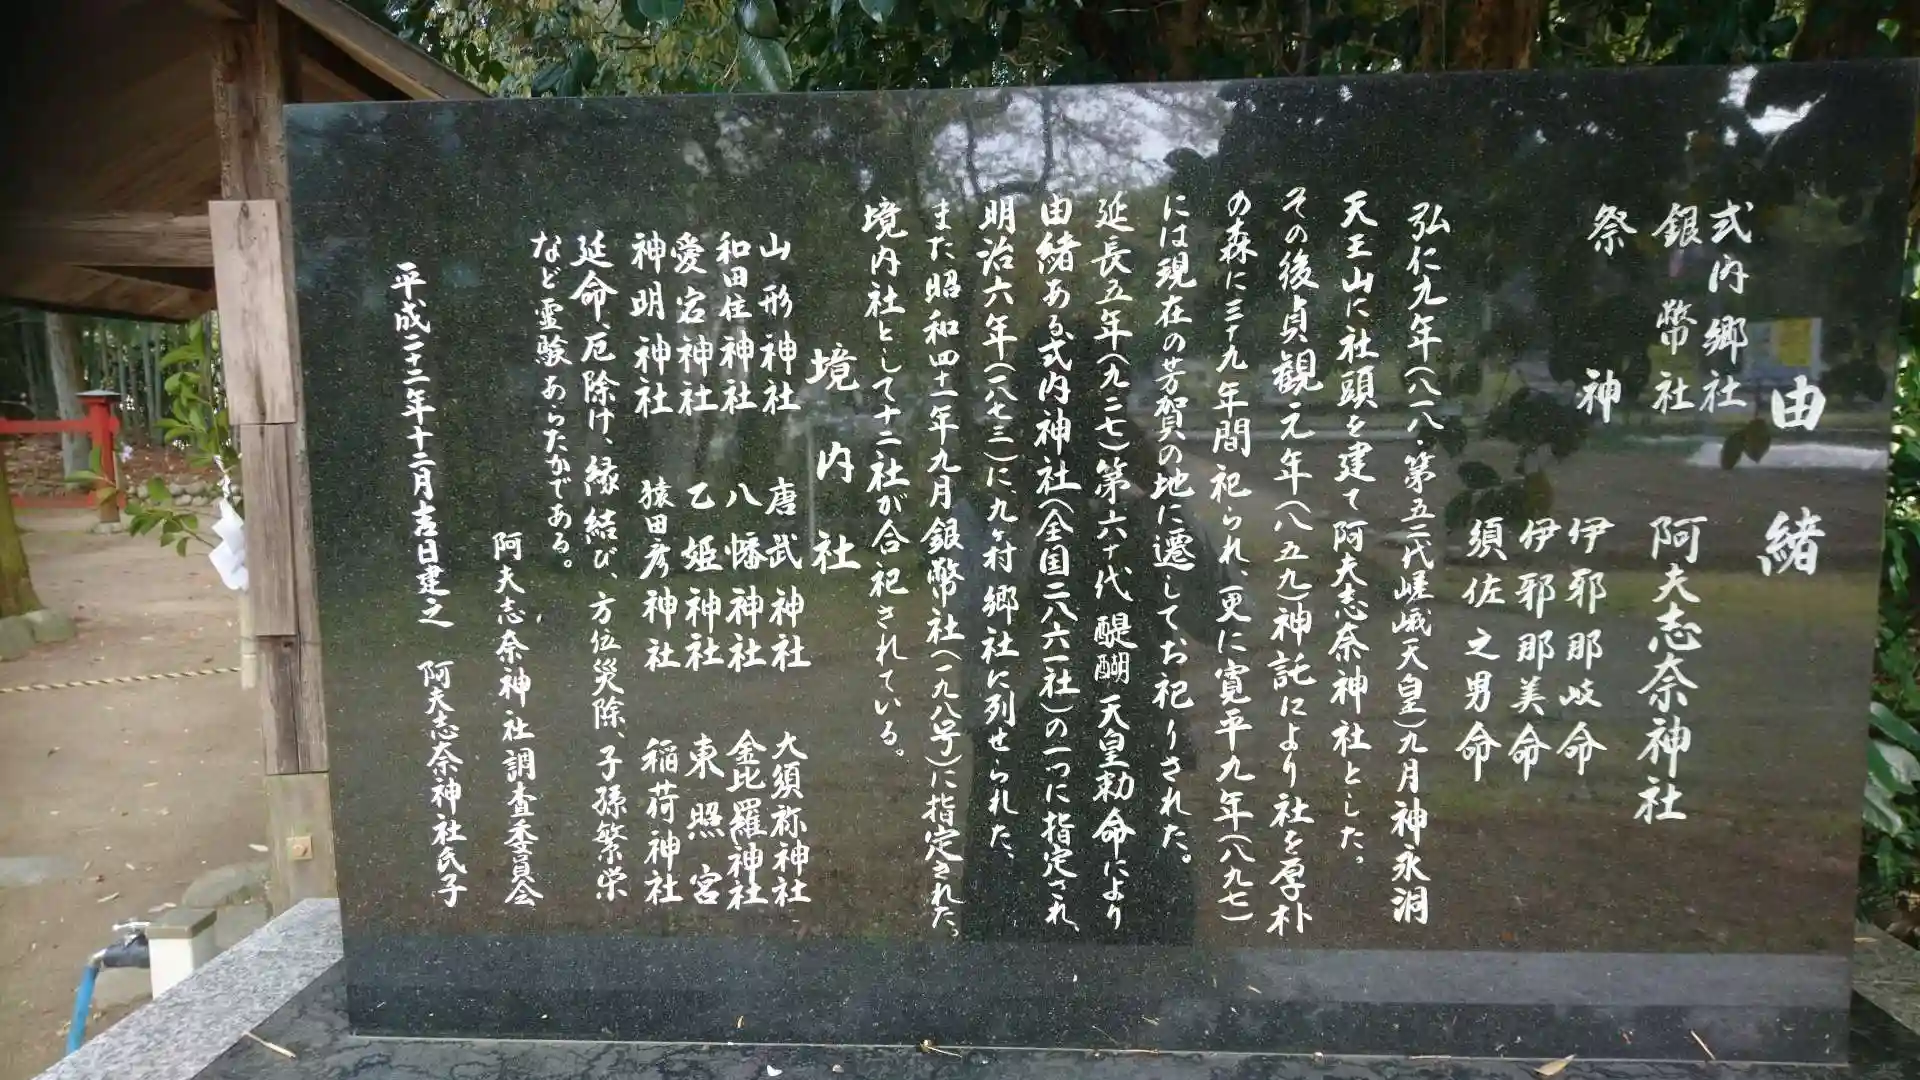 由緒
式内郷社
銀幣社 阿夫志奈神社
祭神
伊邪那岐命
伊邪那美命
須佐之男命
弘仁九年(八一八・第五二代嵯峨天皇)九月神永洞
天王山に社頭を建て阿夫志奈神社とした。
その後貞観元年(八五九)神託により社を厚朴
の森に三十九年間祀られ、更に寛平九年(八九七)
には現在の芳賀の地に遷してお祀りされた。
延長五年(九二七)第六十代醍醐天皇勅命により
由緒ある式内神社(全国二八六一社)の一つに指定され、
明治六年(一八七三)に、九ヶ村郷社に列せられた、
また昭和四十一年九月銀幣社(一九八号)に指定された。
境内社として十二社が合祀されている。
境内社
山形神社 唐武神社 大須祢神社
和田住神社 八幡神社 金比羅神社
愛宕神社 乙姫神社 東照宮
神明神社 猿田彦神社 稲荷神社
延命、厄除け、縁結び、方位災除、子孫繁栄
など霊験あらたかである。
阿夫志奈神社調査委員会
平成二十二年十二月吉日建之 阿夫志奈神社氏子